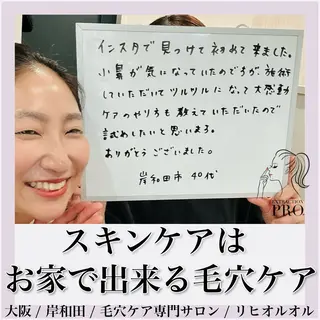 インスタで見つけて初めて来ました。
小鼻が気になっていたのですが、施術
していただいてツルツルになって大感動
ケアのやり方も教えていただいたので
試めしたいと思います。
ありがとうございました。
岸和田市 40代
EXTRACTION
PRO.
スキンケアは
お家で出来る毛穴ケア
大阪 / 岸和田 / 毛穴ケア専門サロン / リヒオルオル